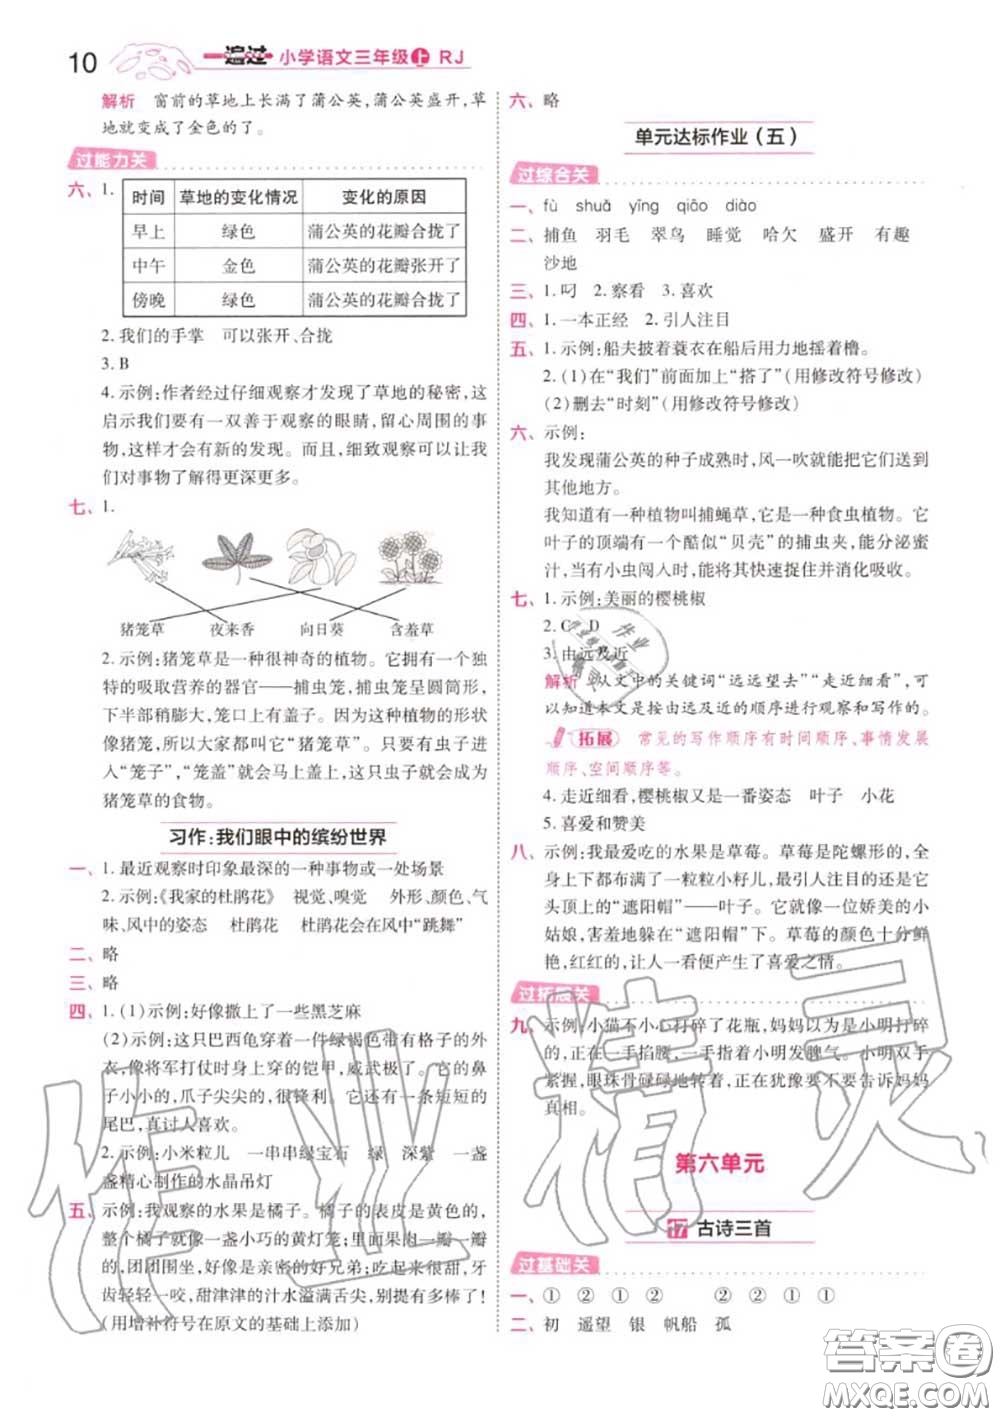 10 一遍过 小学语文三年级上 RJ
解析 窗前的草地上长满了蒲公英,蒲公英盛开,草
地就变成了金色的了。
过能力关
六、1.
时间 草地的变化情况 变化的原因
早上 绿色 蒲公英的花瓣合拢了
中午 金色 蒲公英的花瓣张开了
傍晚 绿色 蒲公英的花瓣合拢了
2. 我们的手掌 可以张开、合拢
3. B
4. 示例:作者经过仔细观察才发现了草地的秘密,这
启示我们要有一双善于观察的眼睛,留心周围的事
物,这样才会有新的发现。而且,细致观察可以让我
们对事物了解得更深更多。
七、1.
猪笼草 夜来香 向日葵 含羞草
2. 示例:猪笼草是一种很神奇的植物。它拥有一个独
特的吸取营养的器官——捕虫笼,捕虫笼呈圆筒形,
下半部稍膨大,笼口上有盖子。因为这种植物的形状
像猪笼,所以大家都叫它“猪笼草”。只要有虫子进
入“笼子”,“笼盖”就会马上盖上,这只虫子就会成为
猪笼草的食物。
习作:我们眼中的缤纷世界
一、1. 最近观察时印象最深的一种事物或一处场景
2. 示例:《我家的杜鹃花》 视觉、嗅觉 外形、颜色、气
味、风中的姿态 杜鹃花 杜鹃花会在风中“跳舞”
二、略
三、略
四、1. (1)示例:好像撒上了一些黑芝麻
(2)示例:这只巴西龟穿着一件绿褐色带有格子的外
衣,像将军打仗时身上穿的铠甲,威武极了。它的鼻
子是小小的,爪子尖尖的,很锋利。它还有一条短短的
尾巴,真讨人喜欢。
2. 示例:小米粒儿 一串串绿宝石 绿 深紫 一盏
盏精心制作的水晶吊灯
五、示例:我观察的水果是橘子。橘子的表皮是黄色的,
整个橘子就像一盏小巧的黄灯笼;里面果肉一瓣一瓣
的,团团围坐,好像是亲密的好兄弟。吃起来很甜,牙
齿轻轻一咬,甜津津的汁水溢满舌尖,别提有多棒了!
(用增补符号在原文的基础上添加)
六、略
单元达标作业(五)
过综合关
一、fù shuā yīng qiāo diào
二、捕鱼 羽毛 翠鸟 睡觉 哈欠 盛开 有趣
沙地
三、1. 叼 2. 察看 3. 喜欢
四、1. 一本正经 2. 引人注目
五、1. 示例:船夫披着蓑衣在船后用力地摇着橹。
2. (1)在“我们”前面加上“搭了”(用修改符号修改)
(2)删去“时刻”(用修改符号修改)
六、示例:
我发现蒲公英的种子成熟时,风一吹就能把它们送到
其他地方。
我知道有一种植物叫捕蝇草,它是一种食虫植物。它
叶子的顶端有一个酷似“贝壳”的捕虫夹,能分泌蜜
汁,当有小虫闯入时,能将其快速捉住并消化吸收。
七、1. 示例:美丽的樱桃椒
2. C D
3. 由远及近
解析 从文中的关键词“远远望去”“走近细看”,可
以知道本文是按由远及近的顺序进行观察和写作的。
拓展 常见的写作顺序有时间顺序、事情发展
顺序、空间顺序等。
4. 走近细看,樱桃椒又是一番姿态 叶子 小花
5. 喜爱和赞美
八、示例:我最爱吃的水果是草莓。草莓是陀螺形的,全
身上下都布满了一粒粒小籽儿,最引人注目的还是它
头顶上的“遮阳帽”——叶子。它就像一位娇美的小
姑娘,害羞地躲在“遮阳帽”下。草莓的颜色十分鲜
艳,红红的,让人一看便产生了喜爱之情。
过拓展关
九、示例:小猫不小心打碎了花瓶,妈妈以为是小明打碎
的,正在一手掐腰,一手指着小明发脾气。小明双手
紧握,眼珠骨碌碌地转着,正在犹豫要不要告诉妈妈
真相。
第六单元
17 古诗三首
过基础关
一、① ② ① ② ② ② ① ①
二、初 遥望 银 帆船 孤
作业精灵
答案圈
MXQE.COM